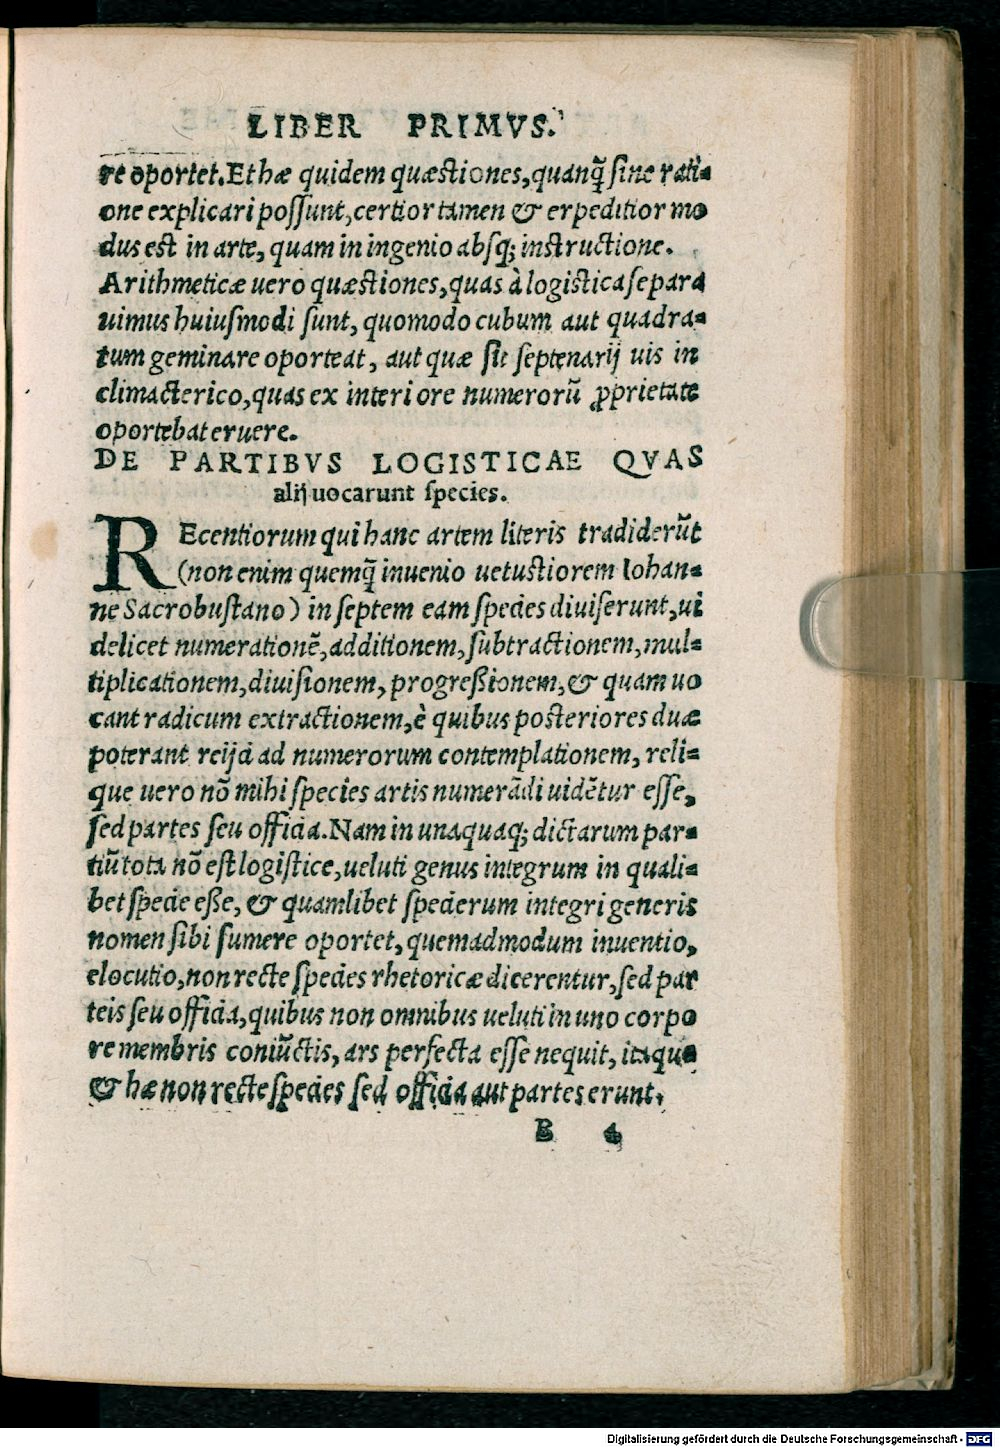 LIBER PRIMVS.
re oportet. Et hæ quidem quæstiones, quanq̃ sine rati=
one explicari possunt, certior tamen & erpeditior mo
dus est in arte, quam in ingenio absq; instructione.
Arithmeticæ uero quæstiones, quas à logistica separa
uimus huiusmodi sunt, quomodo cubum aut quadra=
tum geminare oporteat, aut quæ sit septenarij uis in
climacterico, quas ex interiore numerorũ ꝓprietate
oportebat eruere.
DE PARTIBVS LOGISTICAE QVAS
alij uocarunt species.
REcentiorum qui hanc artem literis tradiderũt
(non enim quemq̃ inuenio uetustiorem Iohan=
ne Sacrobustano) in septem eam species diuiserunt, ui
delicet numerationẽ, additionem, subtractionem, mul=
tiplicationem, diuisionem, progreßionem, & quam uo
cant radicum extractionem, è quibus posteriores duæ
poterant reijci ad numerorum contemplationem, reli=
que uero nõ mihi species artis numerãdi uidẽtur esse,
sed partes seu officia. Nam in unaquaq; dictarum par=
tiũ tota nõ est logistice, ueluti genus integrum in quali=
bet specie eße, & quamlibet specierum integri generis
nomen sibi sumere oportet, quemadmodum inuentio,
elocutio, non recte species rhetoricæ dicerentur, sed par
teis seu officia, quibus non omnibus ueluti in uno corpo
re membris coniũctis, ars perfecta esse nequit, itaque
& hæ non recte species sed officia aut partes erunt.
B 4
Digitalisierung gefördert durch die Deutsche Forschungsgemeinschaft - DFG